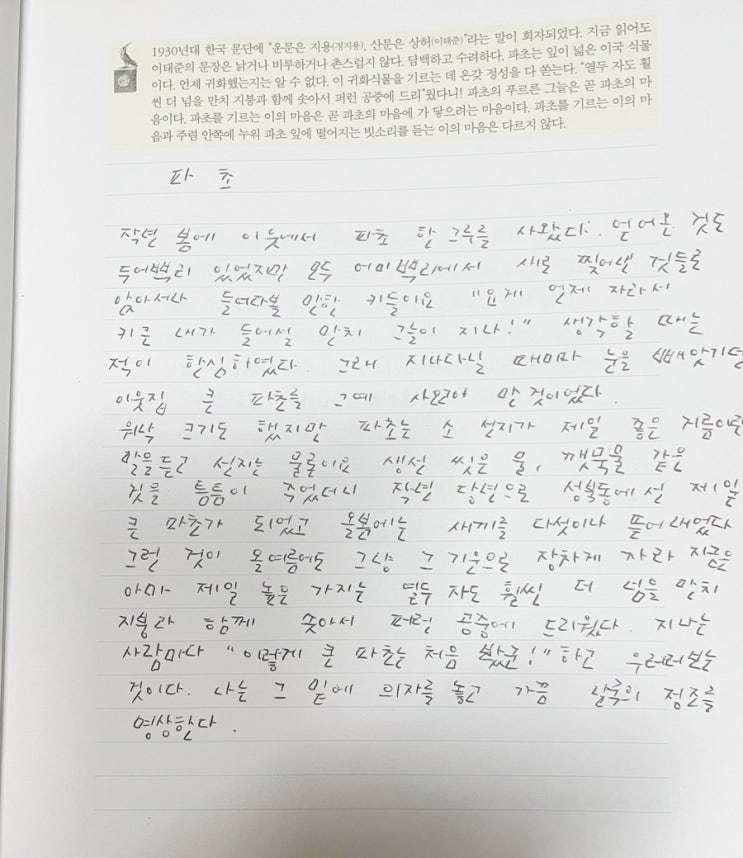 1930년대 한국 문단에 “운문은 지용(정지용), 산문은 상허(이태준)”라는 말이 회자되었다. 지금 읽어도
이태준의 문장은 낡거나 비루하거나 촌스럽지 않다. 담백하고 수려하다. 파초는 잎이 넓은 이국 식물
이다. 언제 귀화했는지는 알 수 없다. 이 귀화식물을 기르는 데 온갖 정성을 다 쏟는다. “열두 자도 훨
씬 더 넘을 만치 지붕과 함께 솟아서 퍼런 공중에 드리”웠다니! 파초의 푸르른 그늘은 곧 파초의 마
음이다. 파초를 기르는 이의 마음은 곧 파초의 마음에 가 닿으려는 마음이다. 파초를 기르는 이의 마
음과 주렴 안쪽에 누워 파초 잎에 떨어지는 빗소리를 듣는 이의 마음은 다르지 않다.
파 초
작년 봄에 이웃에서 파초 한 그루를 사왔다. 얻어온 것도
두어뿌리 있었지만 모두 어미뿌리에서 새로 찢어낸 것들로
앉아서나 들여다볼 만한 키들이요 “요게 언제 자라서
키큰 내가 들어설 만치 그늘이 지나!” 생각할 때는
적이 한심하였다. 그래 지나다닐 때마다 눈을 빼앗기던
이웃집 큰 파초를 그예 사오고야 만 것이었다.
워낙 크기도 했지만 파초는 소 선지가 제일 좋은 거름이란
말을 듣고 선지는 물론이요 생선 씻은 물, 깻묵물 같은
것을 틈틈이 주었더니 작년 당년으로 성북동에선 제일
큰 파초가 되었고 올봄에는 새끼를 다섯이나 뜯어내었다
그런 것이 올여름에도 그냥 그 기운으로 장차게 자라 지금은
아마 제일 높은 가지는 열두 자도 훨씬 더 넘을 만치
지붕과 함께 솟아서 퍼런 공중에 드리웠다. 지나는
사람마다 “이렇게 큰 파초는 처음 봤군!” 하고 우러러보는
것이다. 나는 그 밑에 의자를 놓고 가끔 남국의 정조를
명상한다.